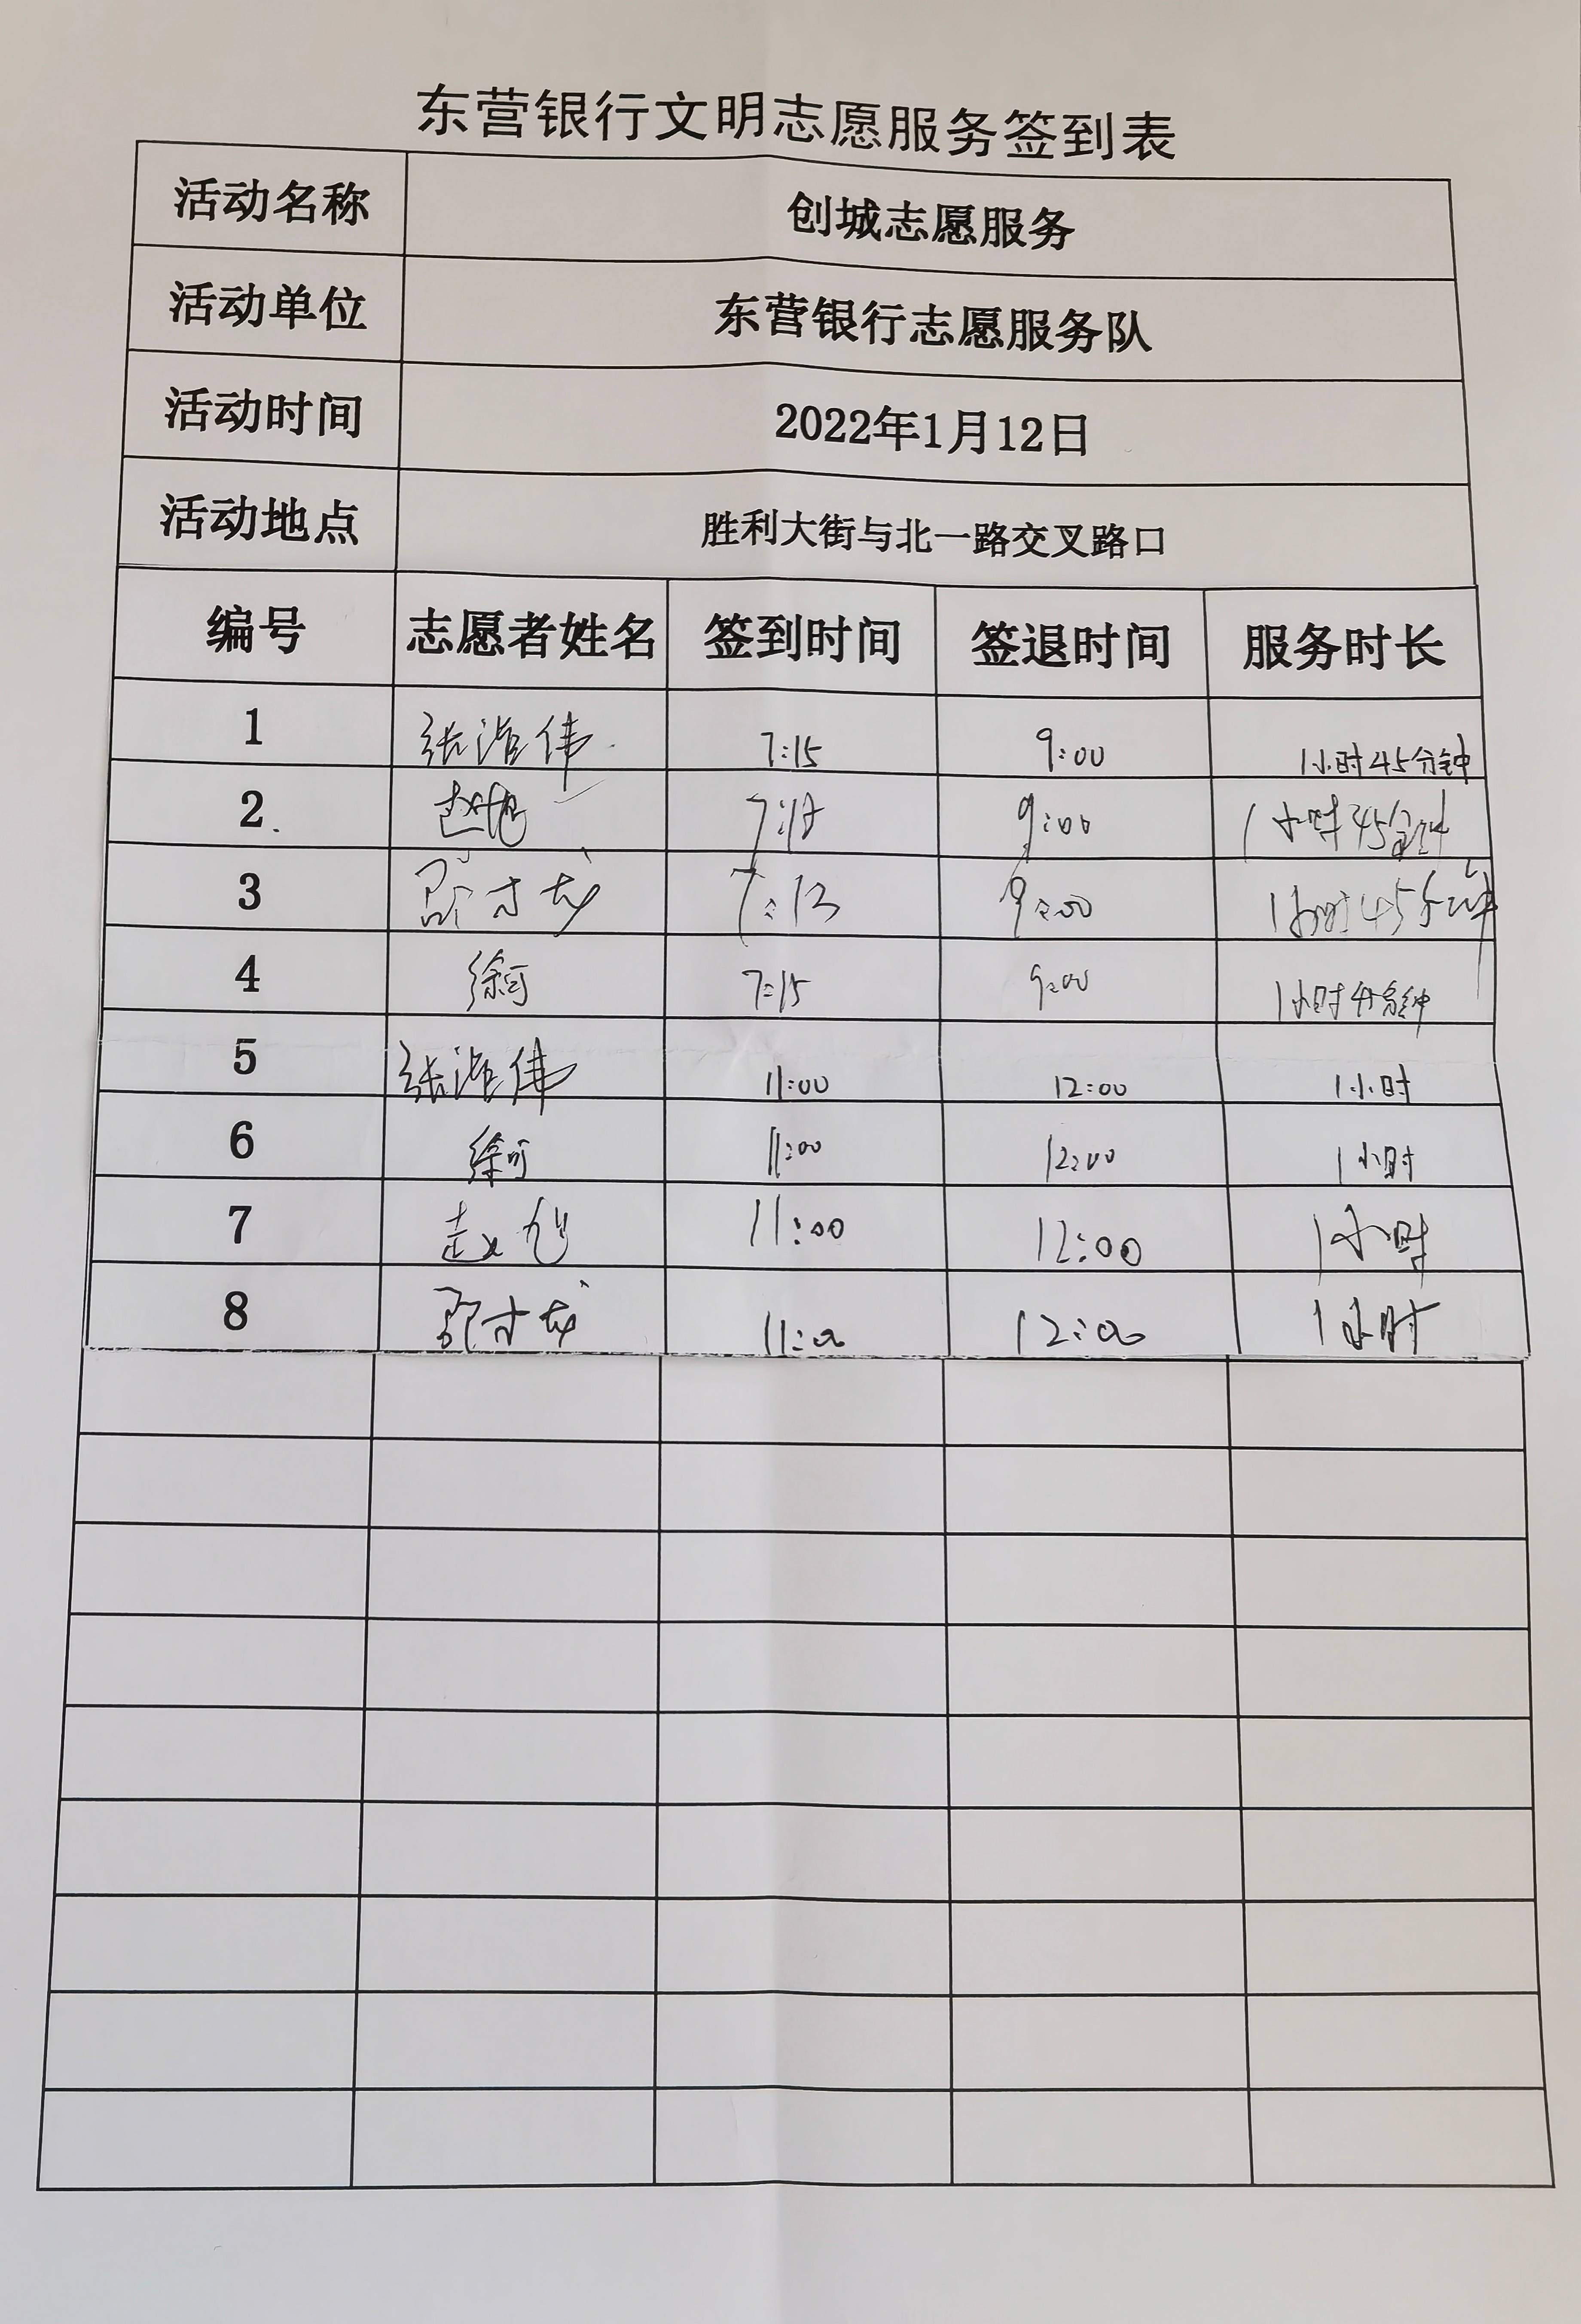 东营银行文明志愿服务签到表
活动名称 创城志愿服务
活动单位 东营银行志愿服务队
活动时间 2022年1月12日
活动地点 胜利大街与北一路交叉路口
编号 志愿者姓名 签到时间 签退时间 服务时长
1 张浩伟 7:15 9:00 1小时45分钟
2 赵旭 7:15 9:00 1小时45分钟
3 7:15 9:00 1小时45分钟
4 徐可 7:15 9:00 1小时45分钟
5 张浩伟 11:00 12:00 1小时
6 徐可 11:00 12:00 1小时
7 赵旭 11:00 12:00 1小时
8 11:00 12:00 1小时